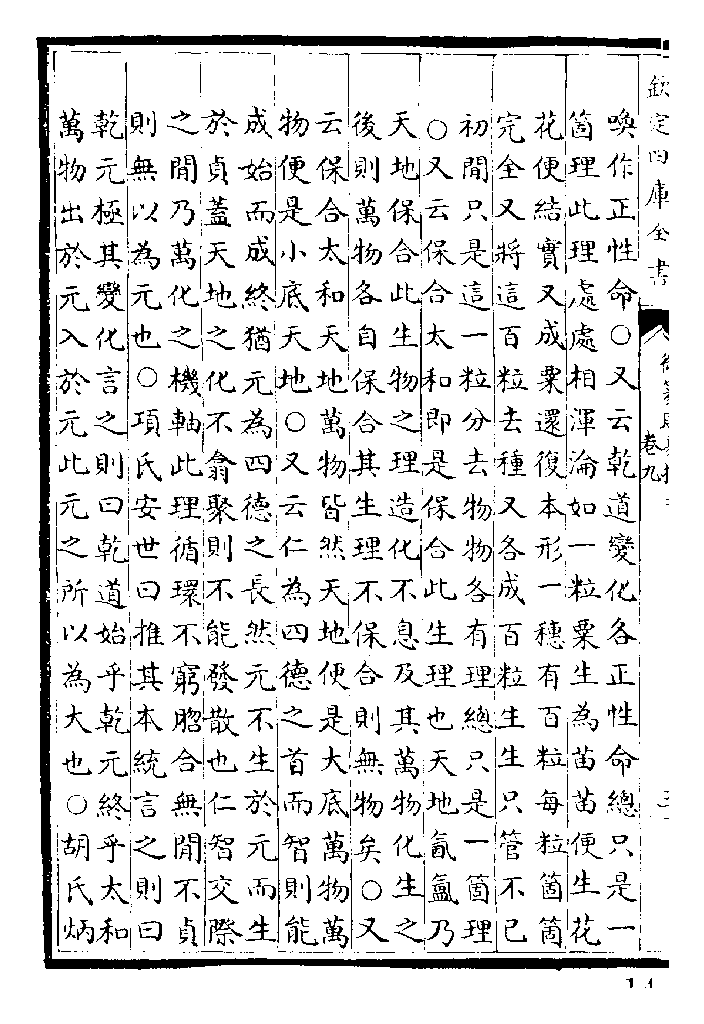 欽定四庫全書
卷九
喚作正性命○又云乾道變化各正性命總只是一
箇理此理處處相渾淪如一粒粟生為苗苗便生花
花便結實又成粟還復本形一穗有百粒每粒箇箇
完全又將這百粒去種又各成百粒生生只管不已
初間只是這一粒分去物物各有理總只是一箇理
○又云保合太和即是保合此生理也天地氤氳乃
天地保合此生物之理造化不息及其萬物化生之
後則萬物各自保合其生理不保合則無物矣○又
云保合太和天地萬物皆然天地便是大底萬物萬
物便是小底天地○又云仁為四德之首而智則能
成始而成終猶元為四德之長然元不生於元而生
於貞蓋天地之化不翕聚則不能發散也仁智交際
之間乃萬化之機軸此理循環不窮昭合無間不貞
則無以為元也○項氏安世曰推其本統言之則曰
乾元極其變化言之則曰乾道始乎乾元終乎太和
萬物出於元入於元此元之所以為大也○胡氏炳